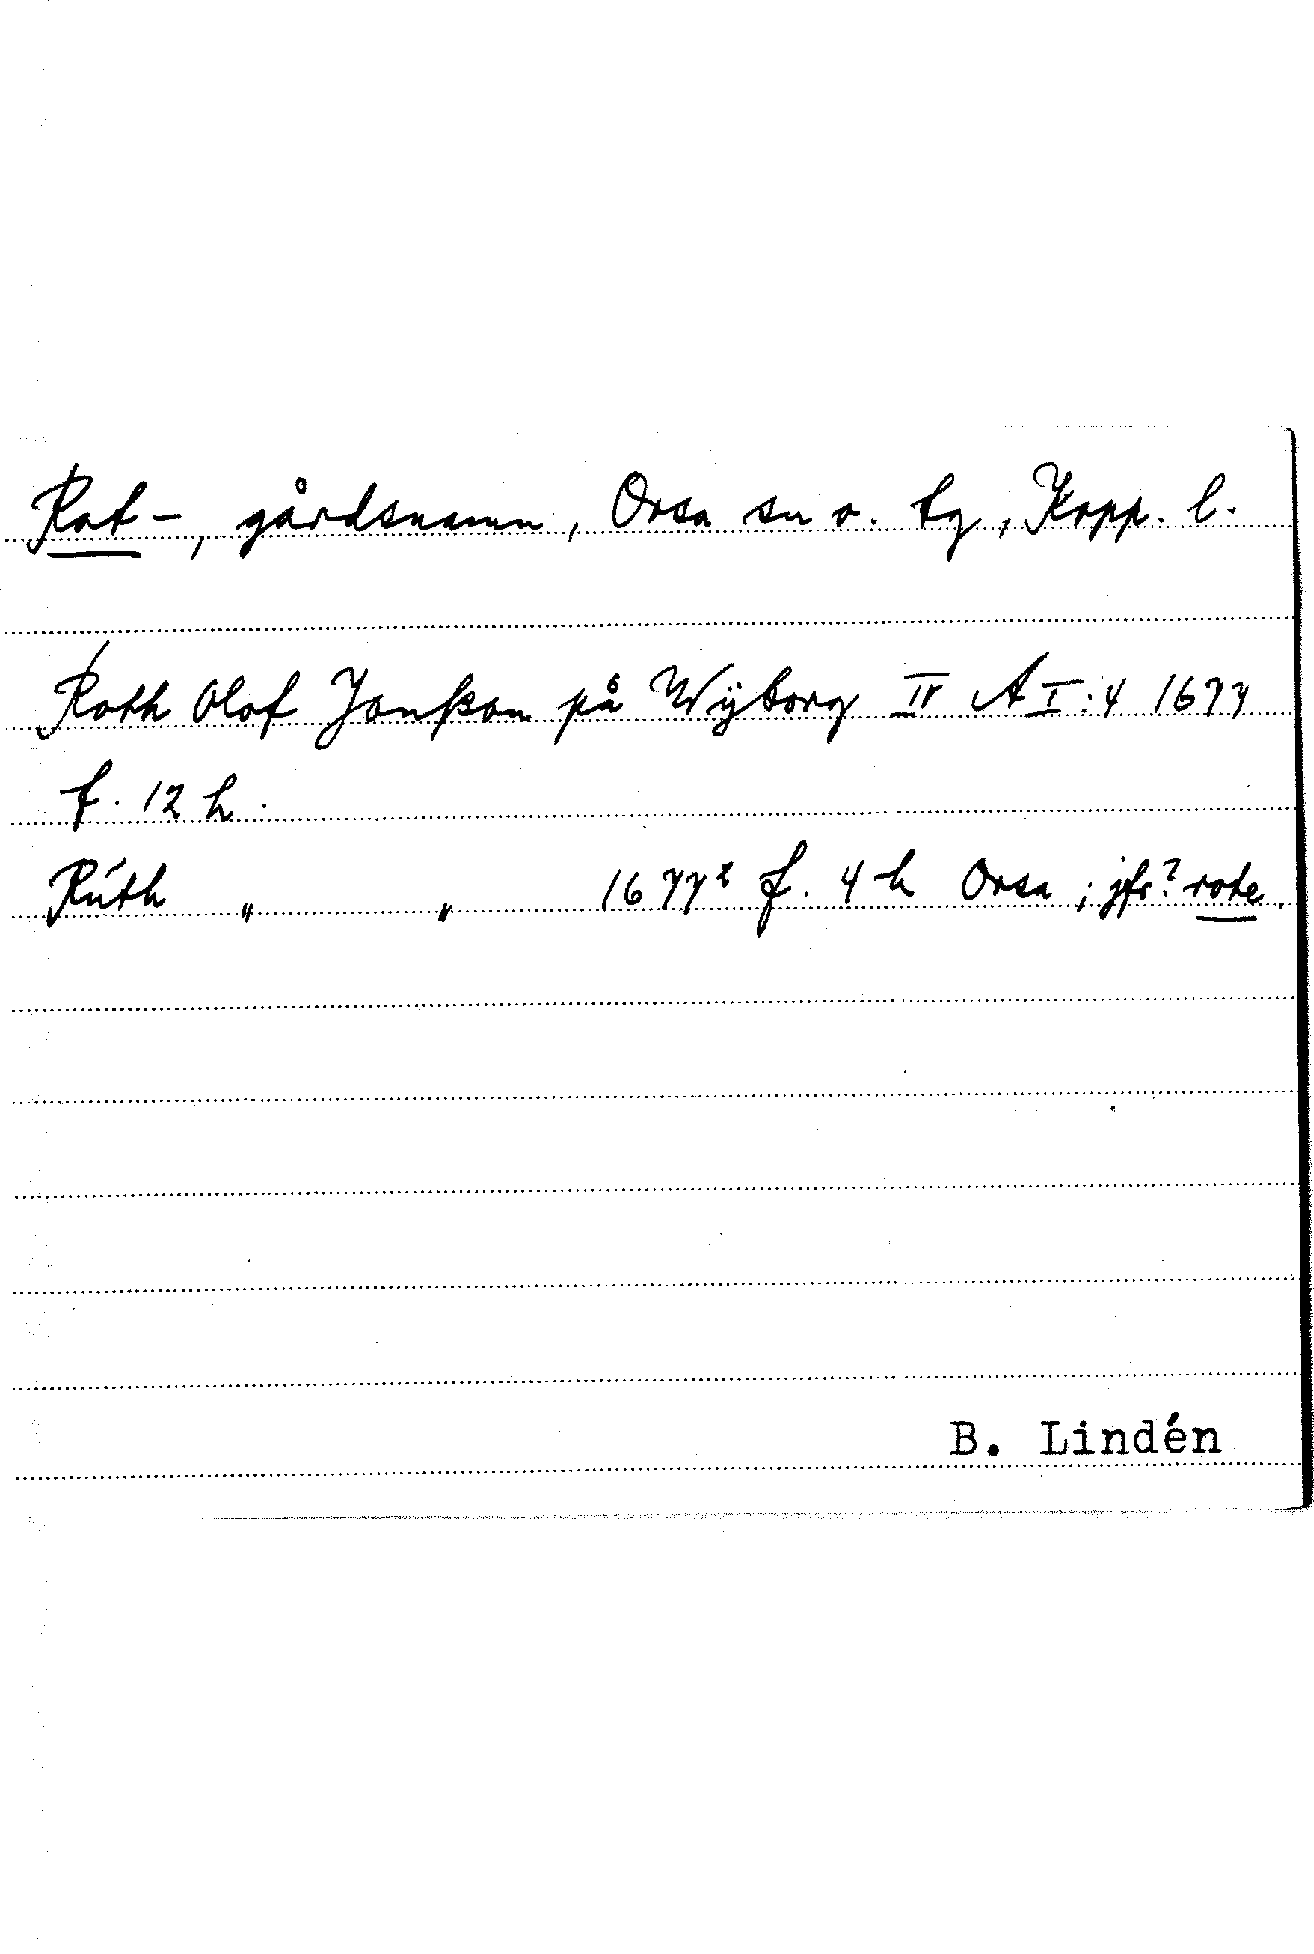 Rot-, gårdsnamn, Orsa sn o. tg, Kopp. l.
Roth Olof Jonßon på Wÿborg IV A I:4 1677
f. 12 h.
Rúth " " 1677² f. 4 h Orsa ; jfr? rote.
B. Lindén